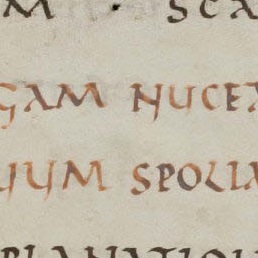 M · SCA
GAM NUCEA
UUM SPOLIA
PLANATION